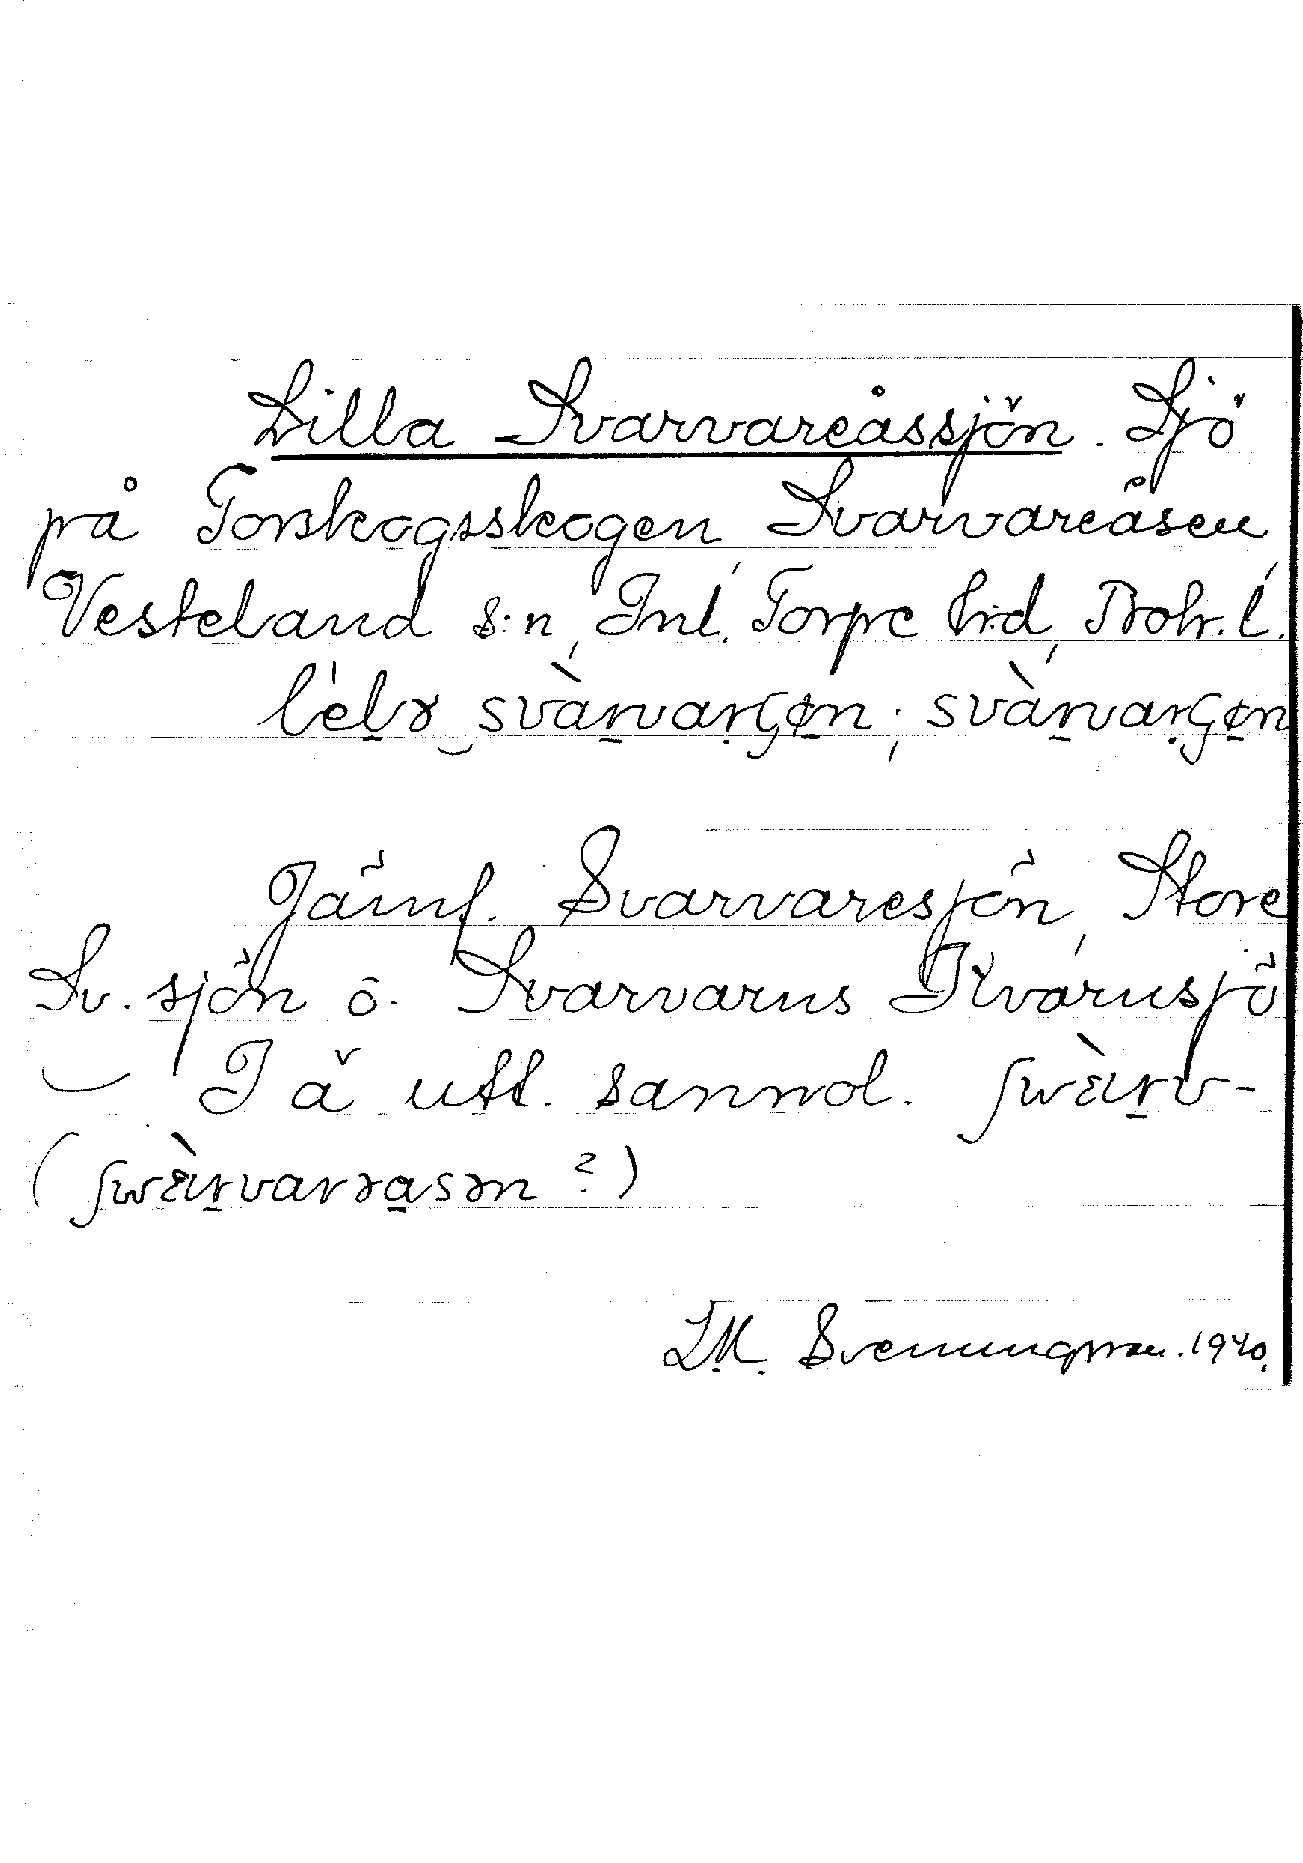 Lilla Svarvareåssjön. Sjö
på Torskogsskogen, Svarvareåsen,
Vesteland s:n, Inl. Torpe hd, Boh. l.
svàrvarʃøn; svàrvarʃøn
Jämf. Svarvaresjön, Store
Sv. sjön o. Svarvarns Kvarnsjö
— I ä utt. sannol. ʃwæ̀rv-
(ʃwæ̀rvarəasən?)
S.M. Svenungsson. 1940.